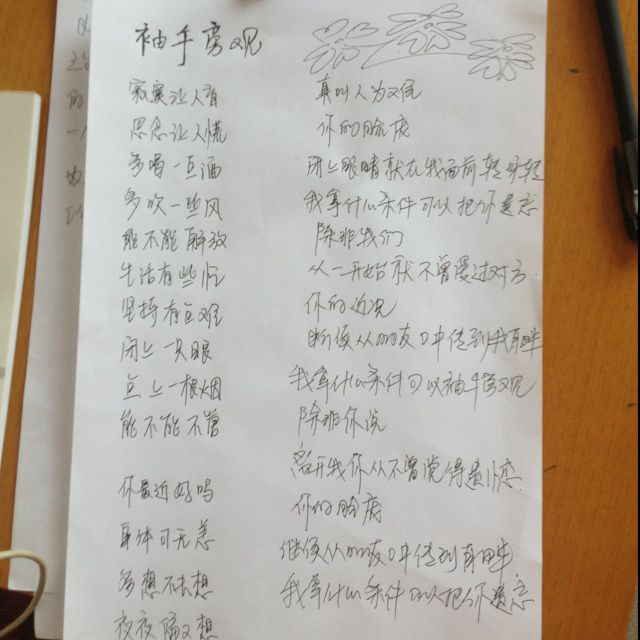 袖手旁观
寂寞让人盲
思念让人慌
多喝一点酒
多吹一些风
能不能解放
生活有些忙
坚持有点难
闭上一只眼
点上一根烟
能不能不管
你最近好吗
身体可无恙
多想不去想
夜夜偏又想
真叫人为难
你的脸庞
闭上眼睛就在我面前转呀转
我拿什么条件可以把你遗忘
除非我们
从一开始就不曾爱过对方
你的近况
断续从朋友口中传到我耳畔
我拿什么条件可以袖手旁观
除非你说
离开我你从不曾觉得遗憾
你的脸庞
继续从朋友口中传到耳畔
我拿什么条件可以把你遗忘